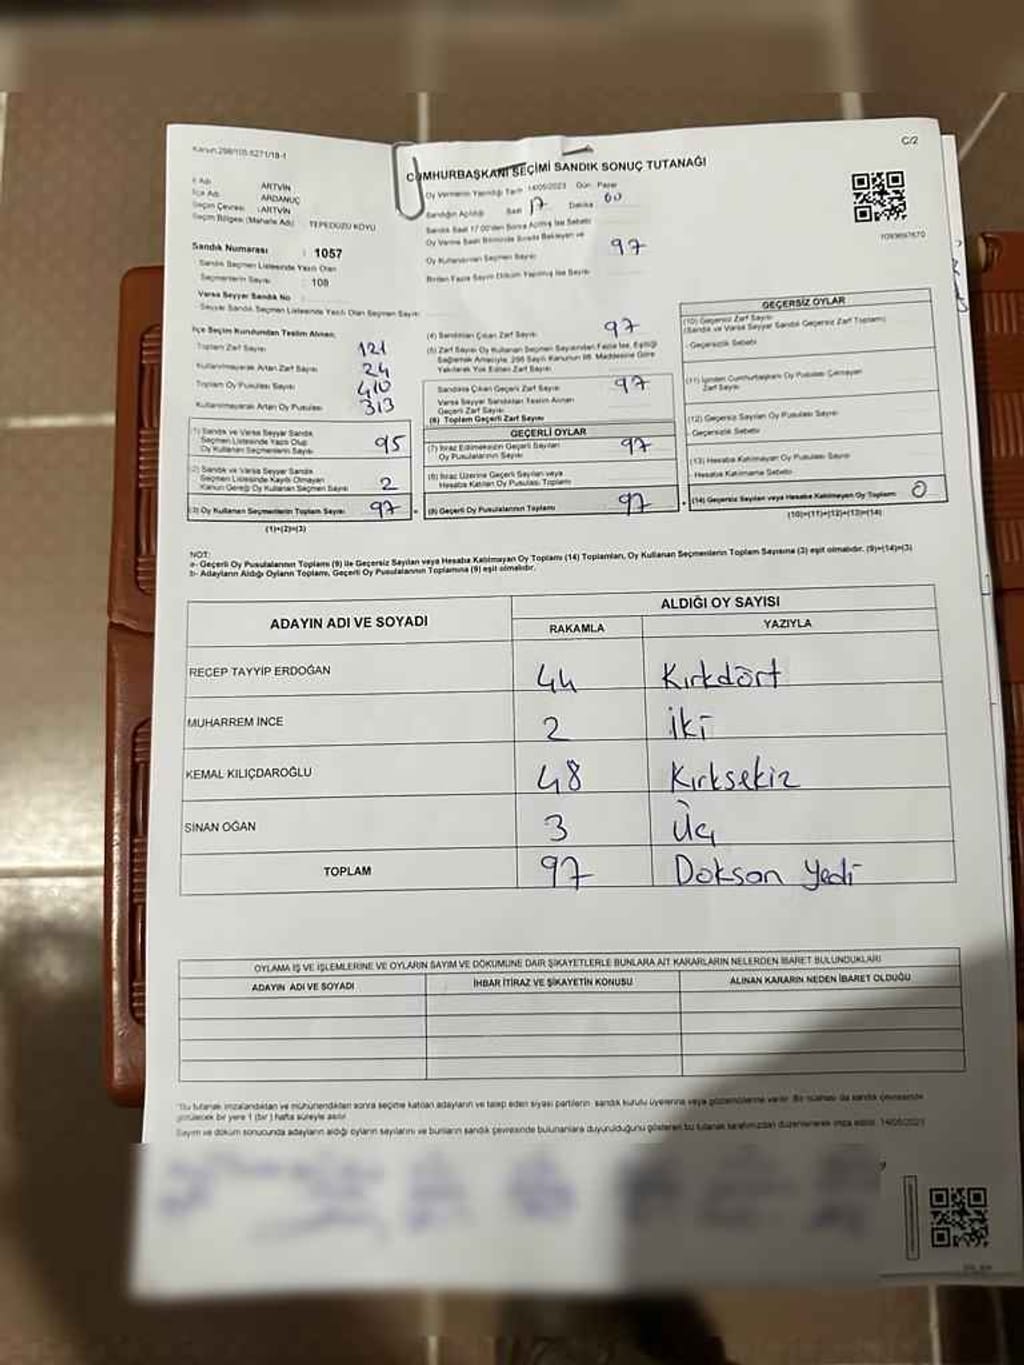 C/2
CUMHURBAŞKANI SEÇİMİ SANDIK SONUÇ TUTANAĞI
ARTVİN
İlçe Adı ARDANUÇ
Seçim Çevresi : ARTVİN
Seçim Bölgesi (Mahalle Adı) TEPEDÜZÜ KÖYÜ
Oy Vermenin Yapıldığı Tarih 14/05/2023 Gün: Pazar
Sandığın Açıldığı Saat 17 Dakika 00
Sandık Saat 17:00'den Sonra Açılmış İse Sebebi
Oy Verme Saati Bitiminde Sırada Bekleyen ve
Oy Kullandırılan Seçmen Sayısı 97
Birden Fazla Sayım Döküm Yapılmış İse Sayısı
Sandık Numarası : 1057
Sandık Seçmen Listesinde Yazılı Olan
Seçmenlerin Sayısı : 108
Varsa Seyyar Sandık No
Seyyar Sandık Seçmen Listesinde Yazılı Olan Seçmen Sayısı
İlçe Seçim Kurulundan Teslim Alınan:
Toplam Zarf Sayısı 121
Kullanılmayarak Artan Zarf Sayısı 24
Toplam Oy Pusulası Sayısı 410
Kullanılmayarak Artan Oy Pusulası 313
(1) Sandık ve Varsa Seyyar Sandık
Seçmen Listesinde Yazılı Olup
Oy Kullanan Seçmenlerin Sayısı 95
(2) Sandık ve Varsa Seyyar Sandık
Seçmen Listesinde Kayıtlı Olmayan
Kanun Gereği Oy Kullanan Seçmen Sayısı 2
(3) Oy Kullanan Seçmenlerin Toplam Sayısı 97
(1)+(2)=(3)
(4) Sandıktan Çıkan Zarf Sayısı 97
(5) Zarf Sayısı Oy Kullanan Seçmen Sayısından Fazla İse, Eşitliği
Sağlamak Amacıyla, 298 Sayılı Kanunun 98. Maddesine Göre
Yakılarak Yok Edilen Zarf Sayısı
Sandıkta Çıkan Geçerli Zarf Sayısı 97
Varsa Seyyar Sandıktan Teslim Alınan
Geçerli Zarf Sayısı
(6) Toplam Geçerli Zarf Sayısı
GEÇERLİ OYLAR
(7) İtiraz Edilmeksizin Geçerli Sayılan
Oy Pusulalarının Sayısı 97
(8) İtiraz Üzerine Geçerli Sayılan veya
Hesaba Katılan Oy Pusulası Toplamı
(9) Geçerli Oy Pusulalarının Toplamı 97
GEÇERSİZ OYLAR
(10) Geçersiz Zarf Sayısı
(Sandık ve Varsa Seyyar Sandık Geçersiz Zarf Toplamı)
- Geçersizlik Sebebi
(11) İçinden Cumhurbaşkanı Oy Pusulası Çıkmayan
Zarf Sayısı
(12) Geçersiz Sayılan Oy Pusulası Sayısı
- Geçersizlik Sebebi
(13) Hesaba Katılmayan Oy Pusulası Sayısı
- Hesaba Katılmama Sebebi
(14) Geçersiz Sayılan veya Hesaba Katılmayan Oy Toplamı 0
(10)+(11)+(12)+(13)=(14)
NOT:
a- Geçerli Oy Pusulalarının Toplamı (9) ile Geçersiz Sayılan veya Hesaba Katılmayan Oy Toplamı (14) Toplamları, Oy Kullanan Seçmenlerin Toplam Sayısına (3) eşit olmalıdır. (9)+(14)=(3)
b- Adayların Aldığı Oyların Toplamı, Geçerli Oy Pusulalarının Toplamına (9) eşit olmalıdır.
ADAYIN ADI VE SOYADI
ALDIĞI OY SAYISI
RAKAMLA YAZIYLA
RECEP TAYYİP ERDOĞAN 44 Kırkdört
MUHARREM İNCE 2 İki
KEMAL KILIÇDAROĞLU 48 Kırksekiz
SİNAN OĞAN 3 Üç
TOPLAM 97 Doksan Yedi
OYLAMA İŞ VE İŞLEMLERİNE VE OYLARIN SAYIM VE DÖKÜMÜNE DAİR ŞİKAYETLERLE BUNLARA AİT KARARLARIN NELERDEN İBARET BULUNDUKLARI
ADAYIN ADI VE SOYADI İHBAR İTİRAZ VE ŞİKAYETİN KONUSU ALINAN KARARIN NEDEN İBARET OLDUĞU
*Bu tutanak imzalandıktan ve mühürlendikten sonra seçime katılan adayların ve talep eden siyasi partilerin sandık kurulu üyelerine veya gözlemcilerine verilir. Bir nüshası da sandık çevresinde
görülecek bir yere 1 (bir) hafta süreyle asılır.
Sayım ve döküm sonucunda adayların aldığı oyların sayılarını ve bunların sandık çevresinde bulunanlara duyurulduğunu gösteren bu tutanak tarafımızdan düzenlenerek imza edildi. 14/05/2023